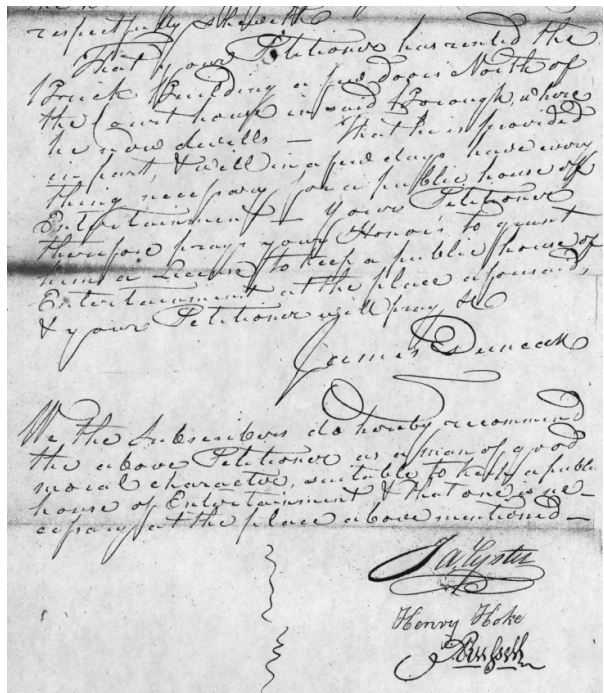 respectfully sheweth
That your Petitioner has rented the
Brick Building a few doors North of
the Court house in said Borough, where
he now dwells — that he is provided
in part, & will in a few days have every
thing necessary for a public house of
Entertainment — your Petitioner
therefore prays your Honors to grant
him a License to keep a public house of
Entertainment at the place aforesaid,
& your Petitioner will pray &c
James Duncan
We the Subscribers do hereby recommend
the above Petitioner as a man of good
moral character, suitable to keep a public
house of Entertainment & that one is ne-
cessary at the place above mentioned —
Henry Hoke